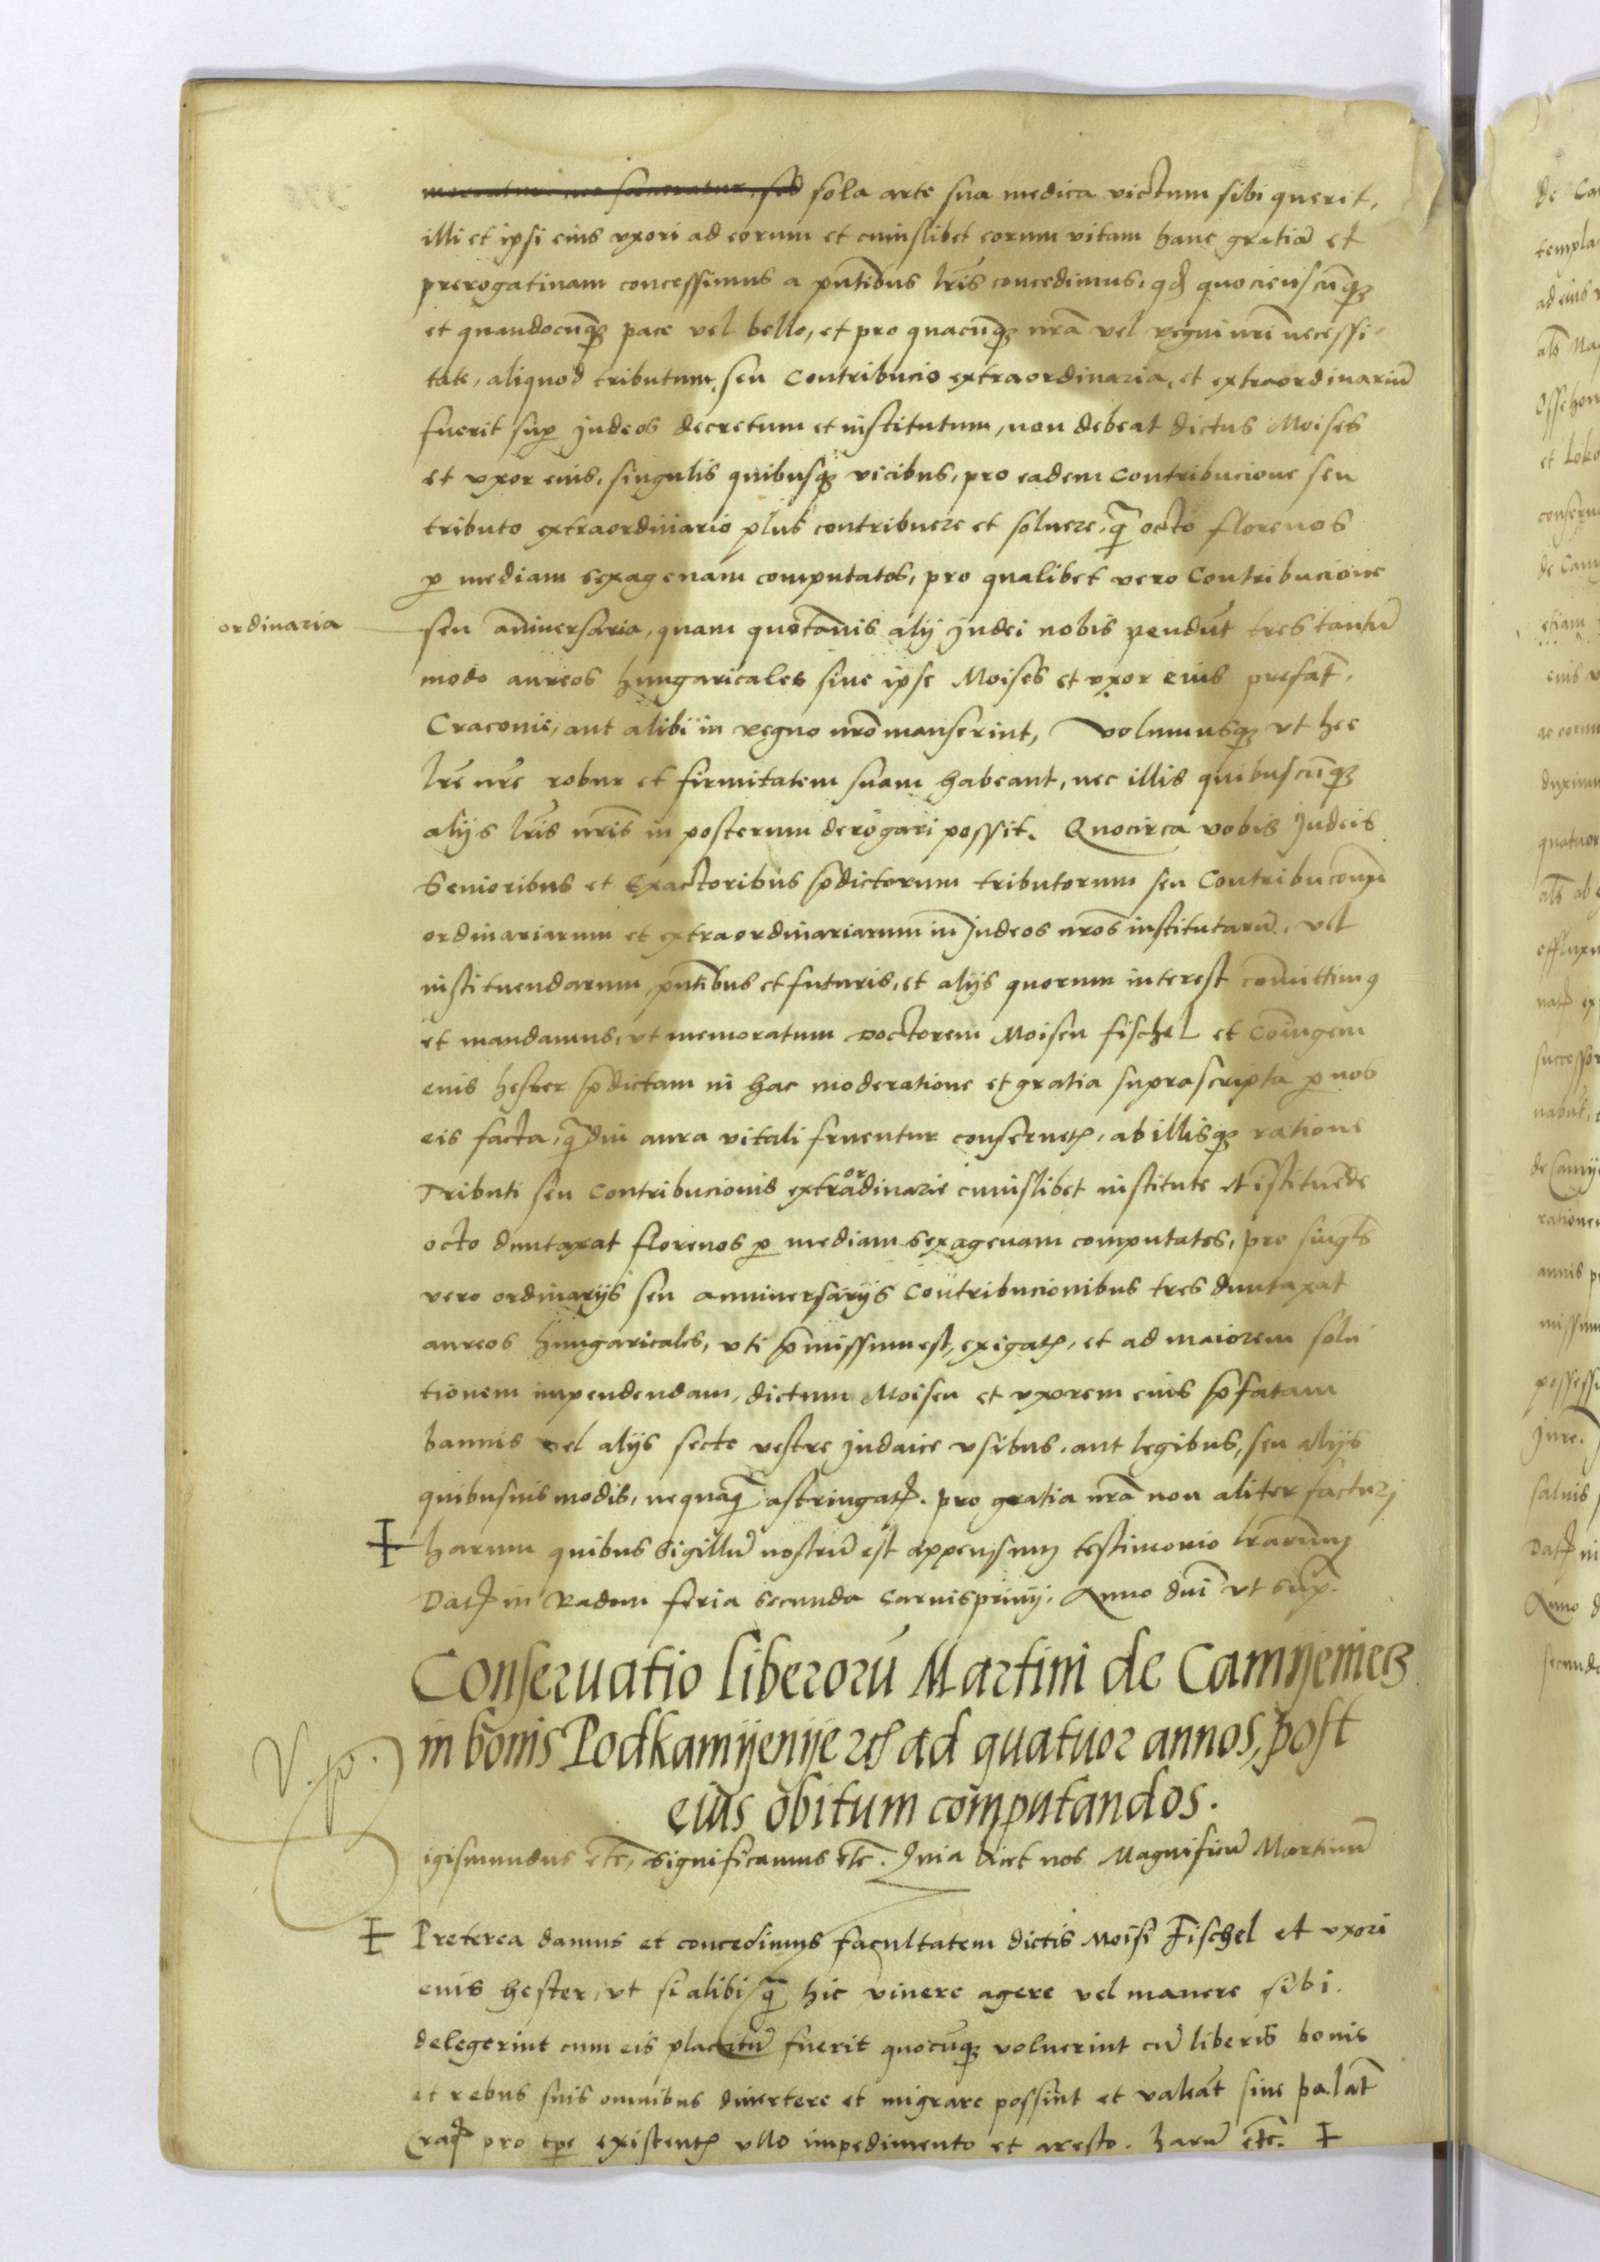 sola arte sua medica victum sibi querit,
illi et ipsi eius uxori ad eorum et cuiuslibet eorum vitam hanc gratiā et
prerogatiuam concessimus a pn̄tibus lr̄is concedimus, qd quocienscūq
et quandocūq pace vel bello, et pro quacūq nrā vel regni nrī necessi-
tate, aliquod tributum, seu Contribucio extraordinaria, et extraordinariū
fuerit sup Judeos decretum et institutum, non debeat dictus Moises
et vxor eius, singulis quibusq vicibus, pro eadem Contribucione seu
tributo extraordinario plus contribuere et soluere, q̄ octo florenos
p mediam sexagenam computatos, pro qualibet vero Contribucione
ordinaria
seu anniuersaria, quam quotannis alij Judei nobis pendūt tres tantū
modo aureos hungaricales siue ipse Moises et vxor eius prefat,
Cracouie, aut alibi in regno nrō manserint, Volumusq vt hee
lrē nrē robur et firmitatem suam habeant, nec illis quibuscūq
alijs lrīs nrīs in posterum derogari possit. Quocirca vobis Judeis
Senioribus et Exactoribus pdictorum tributorum seu Contribuconū
ordinariarum et extraordinariarum in Judeos nrōs institutarū, vel
instituendarum, pn̄tibus et futuris, et alijs quorum interest comittimg
et mandamus, vt memoratum Doctorem Moisen fischel et Coniugem
eius hester pdictam in hac moderatione et gratia suprascripta p nos
eis facta, q̄diu aura vitali fruentur conseruet, ab illisq ratione
Tributi seu Contribucionis extraordinarie cuiuslibet institute et īstituēde
octo duntaxat florenos p mediam sexagenam computatos, pro singlis
vero ordinarijs seu anniuersarijs Contribucionibus tres duntaxat
aureos hungaricales, vti pmissum est, exigat, et ad maiorem solu
tionem impendendam, dictum Moisen et vxorem eius pfatam
bannis vel alijs secte vestre Judaice vsibus, aut legibus, seu alijs
quibusuis modis, nequaq̄ astringat. pro gratia nrā non aliter facturi
‡ harum quibus Sigillū nostrū est appensum testimonio lrarum
Dat in Radom feria secunda Carnispriuij, Anno dnī vt supr.
Conseruatio liberorū Martini de Camijeniecz
in bonis Podkamijenije etc ad quatuor annos, post
eius obitum computandos.
V. p.
igismundus etc, Significamus etc. Quia licet nos Magnificū Martinū
‡ Preterea damus et concedimus facultatem dictis Moisi Fischel et vxori
eius hester, vt si alibi q̄ hic viuere agere vel manere sibi
delegerint cum eis placitū fuerit quocūq voluerint cū liberis bonis
et rebus suis omnibus diuertere et migrare possint et valeāt siue palat
Crac pro tpe existent vllo impedimento et aresto. harū etc. ‡